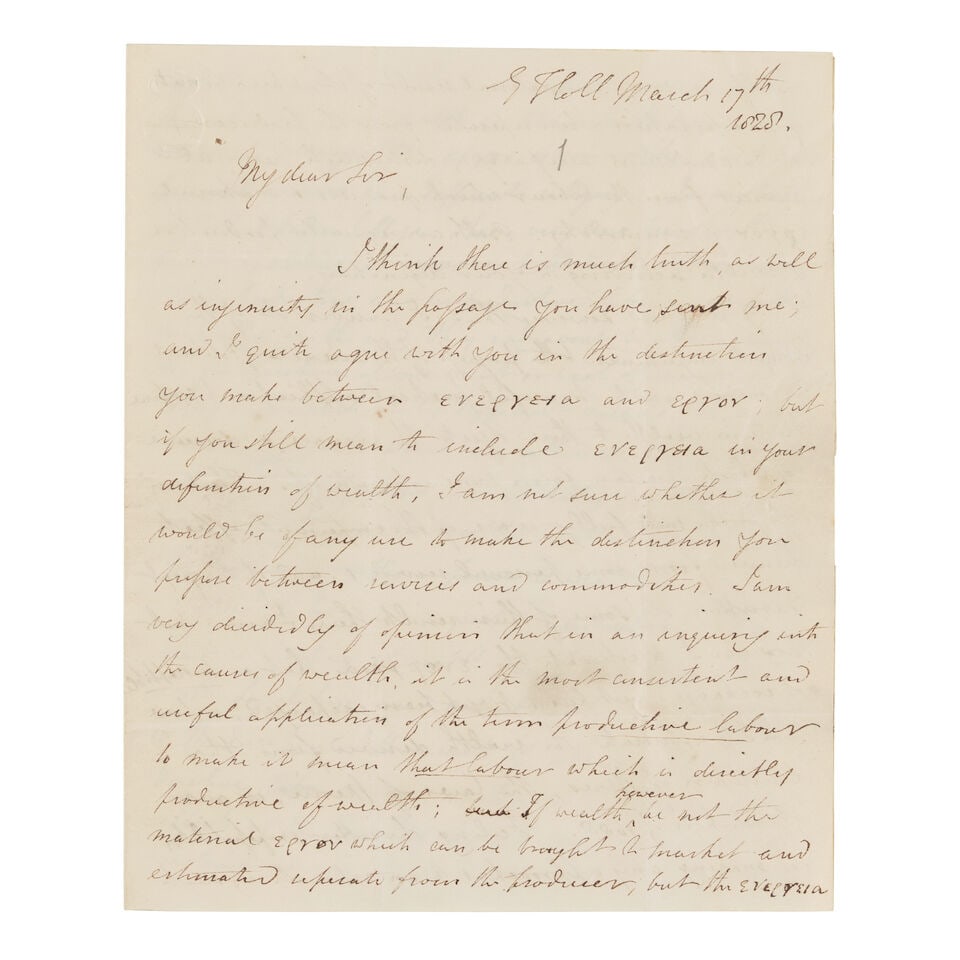 E I Coll March 17th
1828.
1
My dear Sir,
I think there is much truth, as well
as ingenuity in the passage you have sent me;
and I quite agree with you in the distinction
you make between ενεργεια and εργον; but
if you still mean to include ενεργεια in your
definition of wealth, I am not sure whether it
would be of any use to make the distinction you
propose between services and commodities. I am
very decidedly of opinion that in an inquiry into
the causes of wealth, it is the most consistent and
useful application of the term productive labour
to make it mean that labour which is directly
productive of wealth; but If wealth however be not the
material εργον which can be brought to market and
estimated seperate from the producer, but the ενεργεια